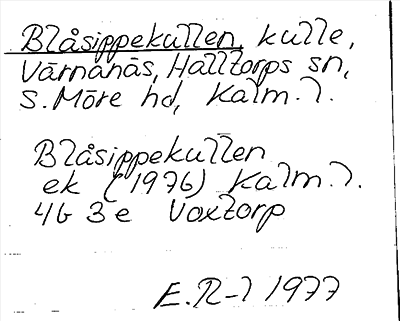 Blåsippekullen, kulle,
Värnanäs, Halltorps sn,
S. Möre hd, Kalm. l.
Blåsippekullen
ek (1976) Kalm. l.
4G 3e Voxtorp
E.R-l 1977